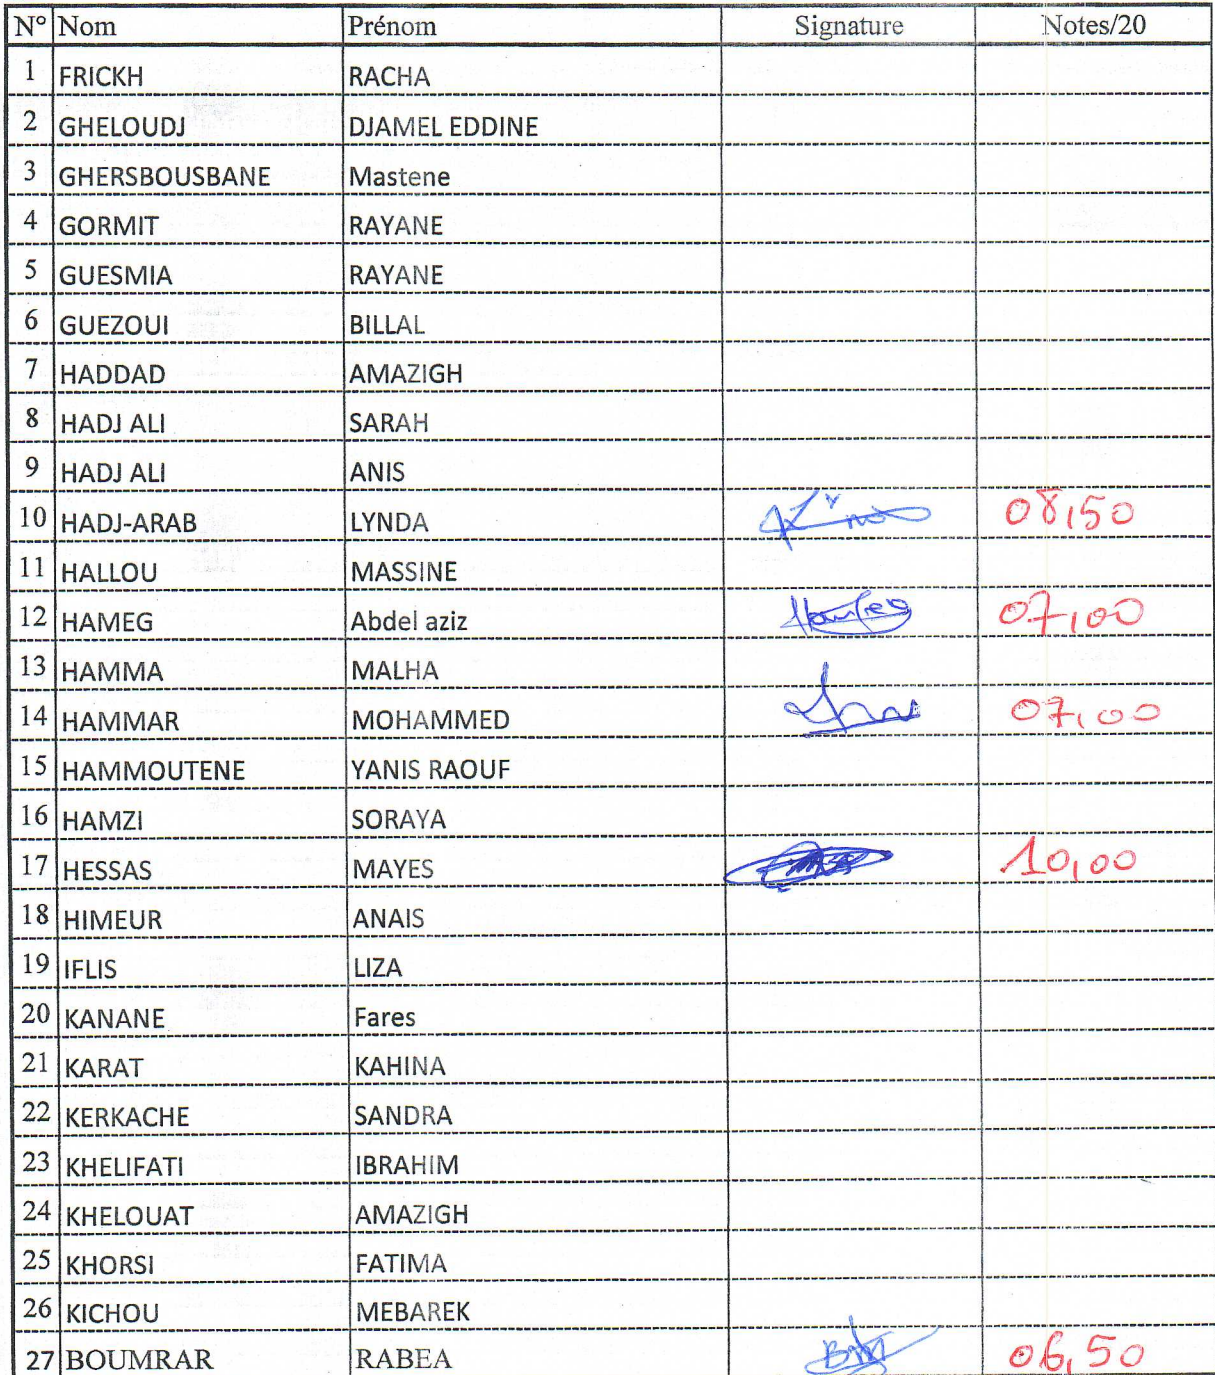 N° Nom Prénom Signature Notes/20
1 FRICKH RACHA
2 GHELOUDJ DJAMEL EDDINE
3 GHERSBOUSBANE Mastene
4 GORMIT RAYANE
5 GUESMIA RAYANE
6 GUEZOUI BILLAL
7 HADDAD AMAZIGH
8 HADJ ALI SARAH
9 HADJ ALI ANIS
10 HADJ-ARAB LYNDA 08,50
11 HALLOU MASSINE
12 HAMEG Abdel aziz 07,00
13 HAMMA MALHA
14 HAMMAR MOHAMMED 07,00
15 HAMMOUTENE YANIS RAOUF
16 HAMZI SORAYA
17 HESSAS MAYES 10,00
18 HIMEUR ANAIS
19 IFLIS LIZA
20 KANANE Fares
21 KARAT KAHINA
22 KERKACHE SANDRA
23 KHELIFATI IBRAHIM
24 KHELOUAT AMAZIGH
25 KHORSI FATIMA
26 KICHOU MEBAREK
27 BOUMRAR RABEA 06,50